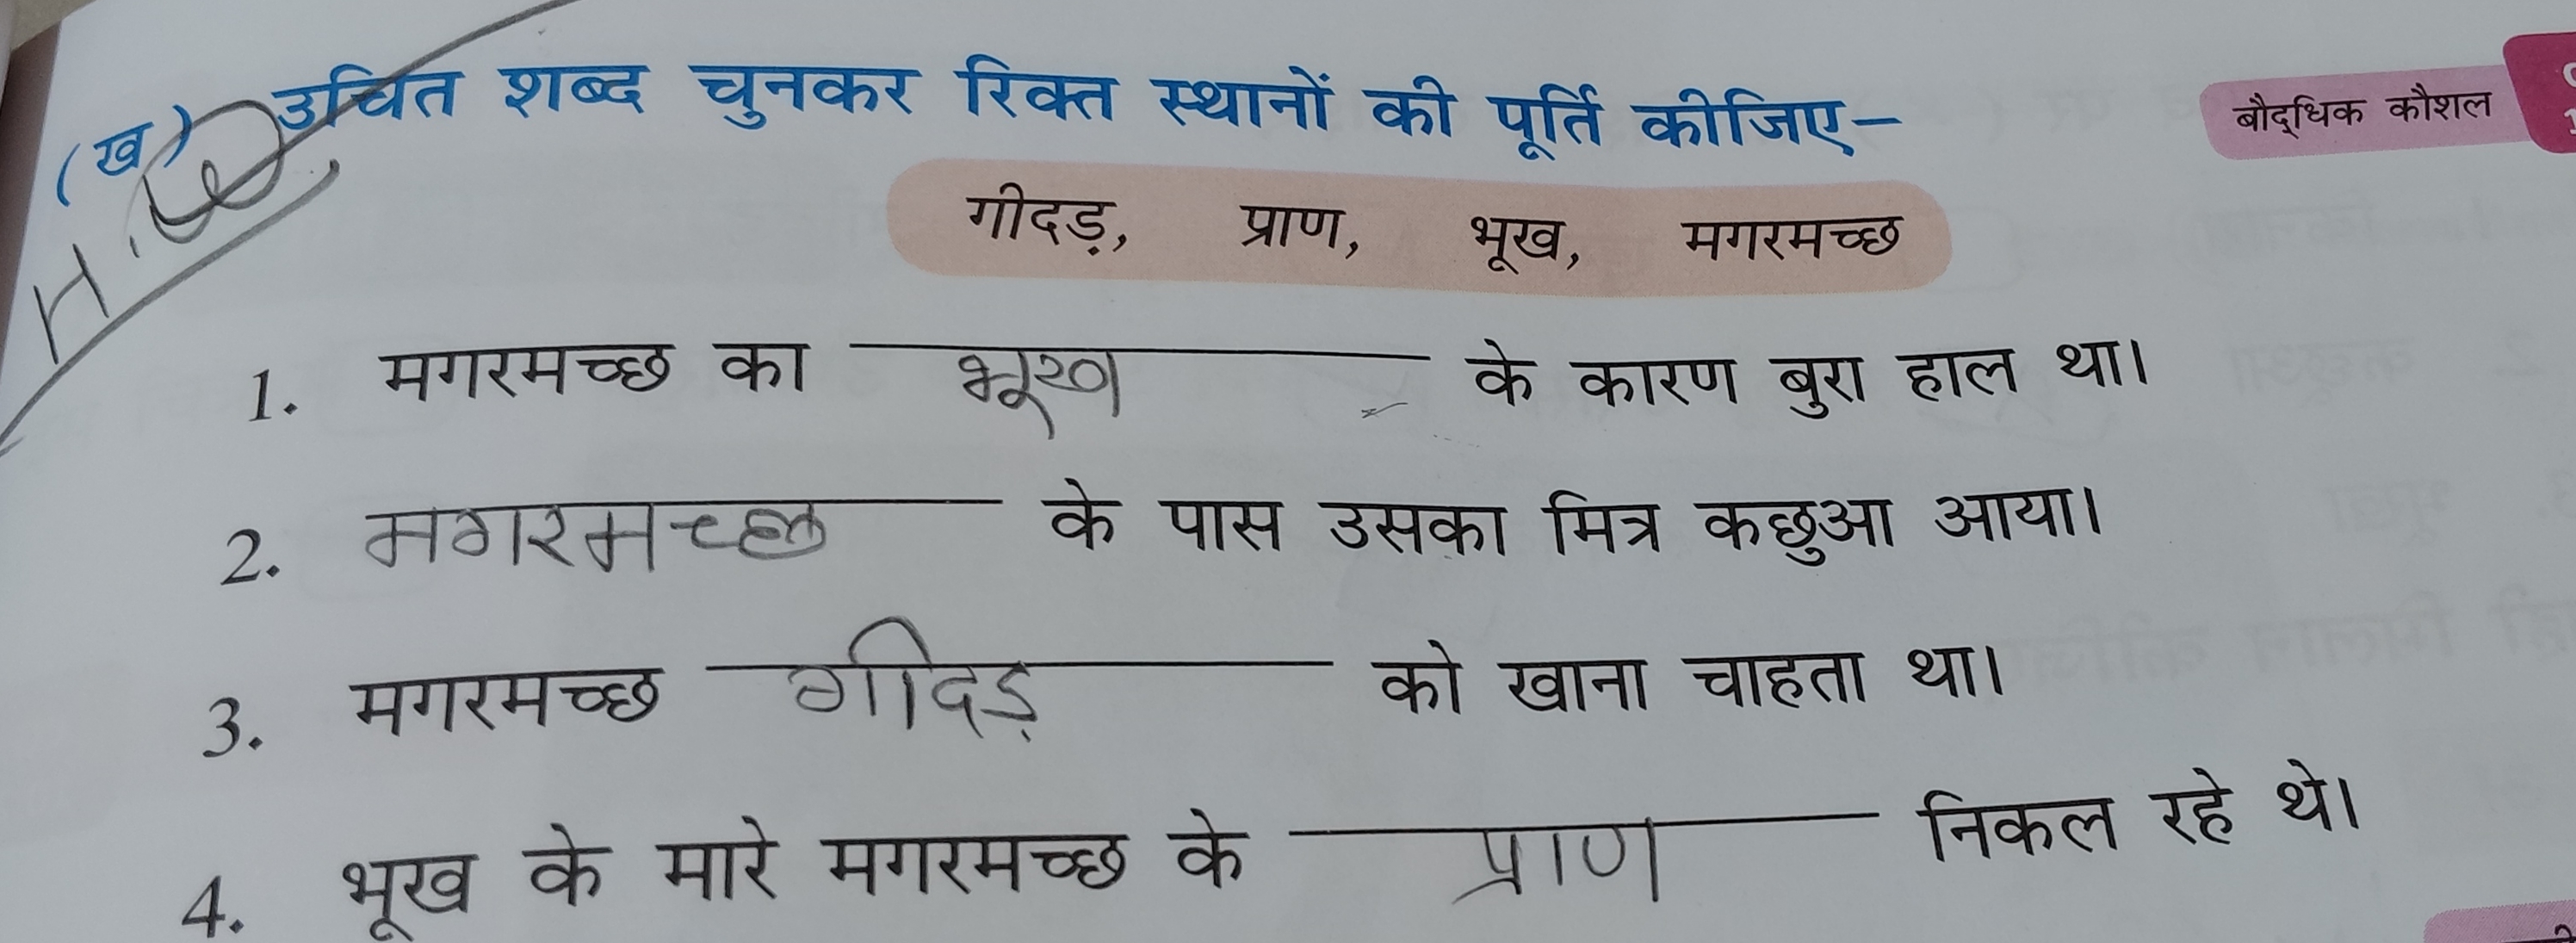 (ख) उचित शब्द चुनकर रिक्त स्थानों की पूर्ति कीजिए–
बौद्धिक कौशल
गीदड़, प्राण, भूख, मगरमच्छ
1. मगरमच्छ का भूख के कारण बुरा हाल था।
2. मगरमच्छ के पास उसका मित्र कछुआ आया।
3. मगरमच्छ गीदड़ को खाना चाहता था।
4. भूख के मारे मगरमच्छ के प्राण निकल रहे थे।